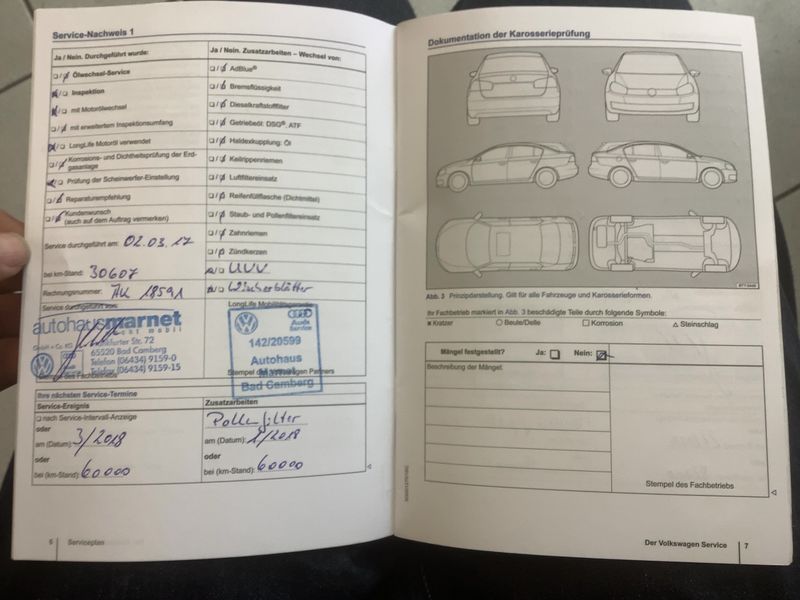 Service-Nachweis 1
Ja / Nein. Durchgeführt wurde:
❏ / ❏ Ölwechsel-Service
❏ / ❏ Inspektion
❏ / ❏ mit Motorölwechsel
❏ / ❏ mit erweitertem Inspektionsumfang
❏ / ❏ LongLife Motoröl verwendet
❏ / ❏ Korrosions- und Dichtheitsprüfung der Erd-
gasanlage
❏ / ❏ Prüfung der Scheinwerfer-Einstellung
❏ / ❏ Reparaturempfehlung
❏ / ❏ Kundenwunsch
(auch auf dem Auftrag vermerken)
Service durchgeführt am: 02.03.17
bei km-Stand: 30607
Rechnungsnummer: AU 18591
Service durchgeführt von:
autohaus marnet
GmbH + Co. KG
Frankfurter Str. 72
65520 Bad Camberg
Telefon (06434) 9159-0
Telefax (06434) 9159-15
Ja / Nein. Zusatzarbeiten – Wechsel von:
❏ / ❏ AdBlue®
❏ / ❏ Bremsflüssigkeit
❏ / ❏ Dieselkraftstofffilter
❏ / ❏ Getriebeöl: DSG®, ATF
❏ / ❏ Haldexkupplung: Öl
❏ / ❏ Keilrippenriemen
❏ / ❏ Luftfiltereinsatz
❏ / ❏ Reifenfüllflasche (Dichtmittel)
❏ / ❏ Staub- und Pollenfiltereinsatz
❏ / ❏ Zahnriemen
❏ / ❏ Zündkerzen
❏ / ❏ UVV
❏ / ❏ Wischerblätter
LongLife Mobilitätsgarantie
Audi
Service
142/20599
Autohaus
Marnet
Bad Camberg
Stempel des Volkswagen Partners
Ihre nächsten Service-Termine
Service-Ereignis
❏ nach Service-Intervall-Anzeige
oder
am (Datum): 3/2018
oder
bei (km-Stand): 60000
Zusatzarbeiten
Pollenfilter
am (Datum): 1/2018
oder
bei (km-Stand): 60000
6 Serviceplan
Dokumentation der Karosserieprüfung
Abb. 3 Prinzipdarstellung. Gilt für alle Fahrzeuge und Karosserieformen.
Ihr Fachbetrieb markiert in Abb. 3 beschädigte Teile durch folgende Symbole:
✖ Kratzer ○ Beule/Delle ❏ Korrosion △ Steinschlag
Mängel festgestellt? Ja: ❏ Nein: ❏
Beschreibung der Mängel:
Stempel des Fachbetriebs
Der Volkswagen Service 7